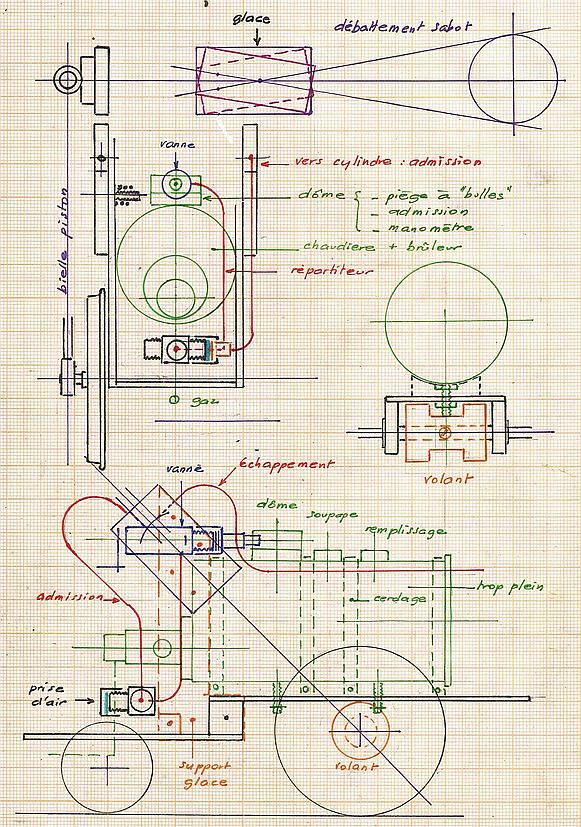 glace
débattement sabot
vanne
vers cylindre : admission
dôme { - piège à "bulles"
- admission
- manomètre
chaudière + brûleur
répartiteur
bielle piston
gaz
volant
échappement
vanne
dôme
soupape
remplissage
admission
trop plein
cerclage
prise
d'air
support
glace
volant